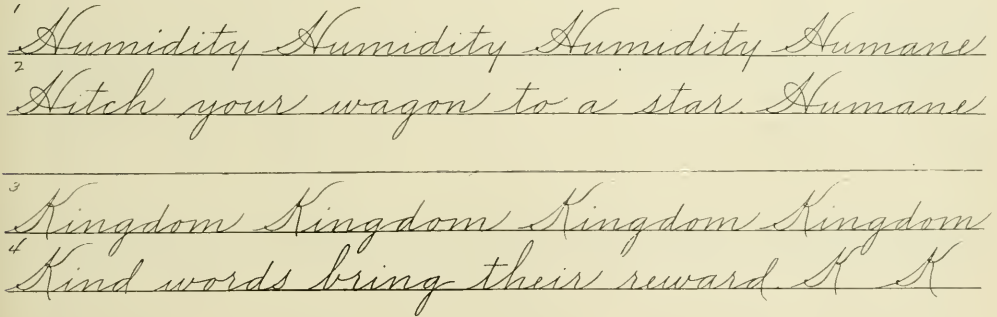 1
Humidity Humidity Humidity Humane
2
Hitch your wagon to a star. Humane
3
Kingdom Kingdom Kingdom Kingdom
4
Kind words bring their reward. K K